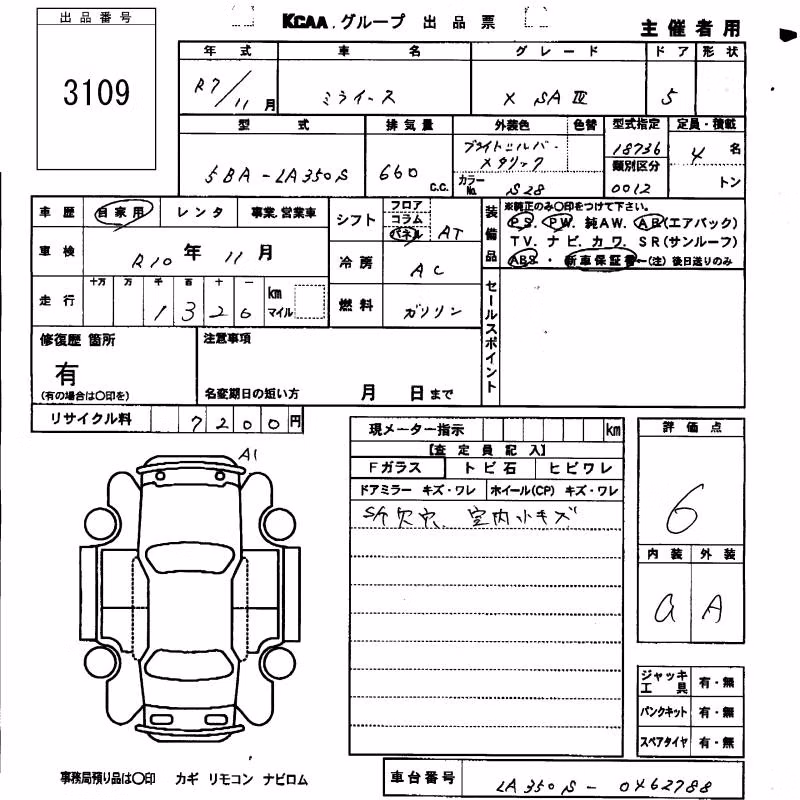 出品番号
3109
KCAA.グループ 出品票
主催者用
年式 車名 グレード ドア 形状
R7/11月 ミライース X SAⅢ 5
型式 排気量 外装色 色替 型式指定 定員・積載
5BA-LA350S 660 c.c. ブライトシルバーメタリック 18736 4 名
カラーNo. S28 類別区分 0012 トン
車歴 自家用 レンタ 事業.営業車
シフト フロア コラム パネル AT
装備品 ※純正のみ○印をつけて下さい。
PS. PW. 純AW. AB(エアバック)
TV. ナビ. カワ. SR(サンルーフ)
ABS・新車保証書←(注)後日送りのみ
車検 R10年 11月
冷房 AC
走行 十万 万 千 百 十 一 km マイル
1326
燃料 ガソリン
セールスポイント
修復歴 箇所
有
(有の場合は○印を)
注意事項
名変期日の短い方 月 日まで
リサイクル料 7200円
現メーター指示 km
【査定員記入】
Fガラス トビ石 ヒビワレ
ドアミラー キズ・ワレ ホイール(CP) キズ・ワレ
S/A欠穴、室内小キズ
A1
評価点
6
内装 外装
a A
ジャッキ工具 有・無
パンクキット 有・無
スペアタイヤ 有・無
事務局預り品は○印 カギ リモコン ナビロム
車台番号 LA350S-0462788